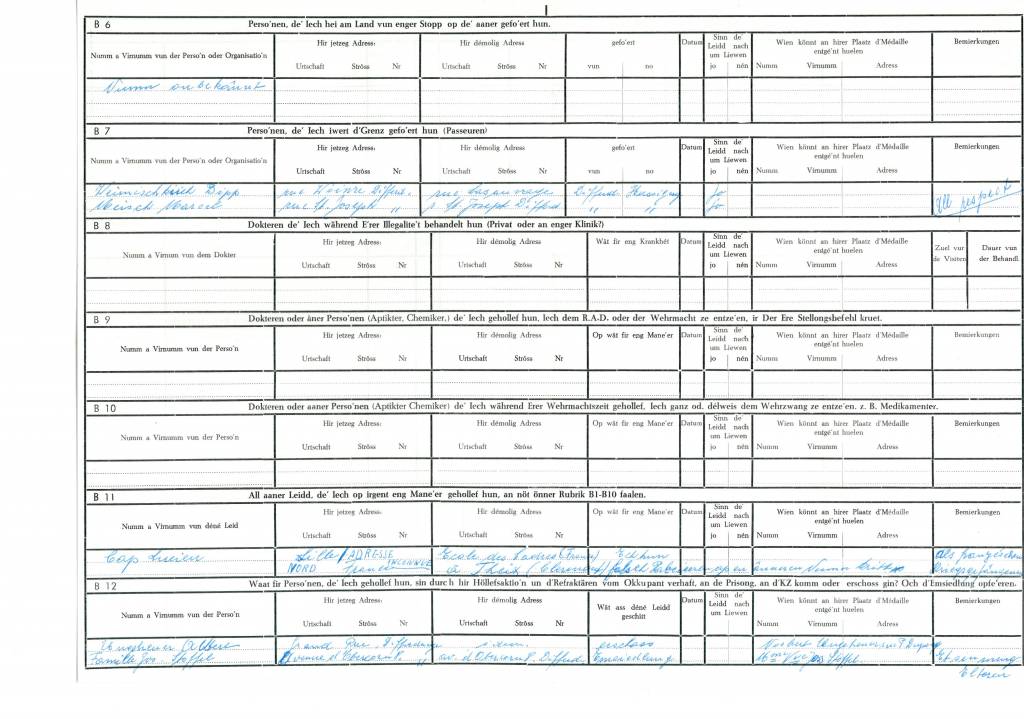 B 6 Perso'nen, de' Iech hei am Land vun enger Stopp op de' aaner gefo'ert hun.
Numm a Virnumm vun der Perso'n oder Organisatio'n
Hir jetzeg Adress: Hir démolig Adress gefo'ert Datum Sinn de' Leidd nach um Liewen Wien könnt an hirer Plaatz d'Médaille entgé'nt huelen Bemierkungen
Urtschaft Ströss Nr Urtschaft Ströss Nr vun no jo nén Numm Virnumm Adress
Numm onbekannt
B 7 Perso'nen, de' Iech iwert d'Grenz gefo'ert hun (Passeuren)
Numm a Virnumm vun der Perso'n oder Organisatio'n
Hir jetzeg Adress: Hir démolig Adress gefo'ert Datum Sinn de' Leidd nach um Liewen Wien könnt an hirer Plaatz d'Médaille entgé'nt huelen Bemierkungen
Urtschaft Ströss Nr Urtschaft Ströss Nr vun no jo nén Numm Virnumm Adress
Weimeschkirch rue Differd. rue Differd. Jo All respect
Meisch Marcel rue St. Joseph " r. St Joseph Differd " " Jo
B 8 Dokteren de' Iech während E'rer Illegalite't behandelt hun (Privat oder an enger Klinik?)
Numm a Virnum vun dem Dokter
Hir jetzeg Adress: Hir démolig Adress Wät fir eng Krankhét Datum Sinn de' Leidd nach um Liewen Wien könnt an hirer Plaatz d'Médaille entgé'nt huelen Zuel vun de Visiten Dauer vun der Behandl.
Urtschaft Ströss Nr Urtschaft Ströss Nr jo nén Numm Virnumm Adress
B 9 Dokteren oder âner Perso'nen (Aptikter, Chemiker,) de' Iech gehollef hun, Iech dem R.A.D. oder der Wehrmacht ze entze'en, ir Der Ere Stellongsbefehl kruet.
Numm a Virnumm vun der Perso'n
Hir jetzeg Adress: Hir démolig Adress Op wät fir eng Mane'er Datum Sinn de' Leidd nach um Liewen Wien könnt an hirer Plaatz d'Médaille entgé'nt huelen Bemierkungen
Urtschaft Ströss Nr Urtschaft Ströss Nr jo nén Numm Virnumm Adress
B 10 Dokteren oder aaner Perso'nen (Aptikter Chemiker) de' Iech während Erer Wehrmachtszeit gehollef, Iech ganz od. délweis dem Wehrzwang ze entze'en. z. B. Medikamenter.
Numm a Virnumm vun der Perso'n
Hir jetzeg Adress: Hir démolig Adress Op wät fir eng Mane'er Datum Sinn de' Leidd nach um Liewen Wien könnt an hirer Plaatz d'Médaille entgé'nt huelen Bemierkungen
Urtschaft Ströss Nr Urtschaft Ströss Nr jo nén Numm Virnumm Adress
B 11 All aaner Leidd, de' Iech op irgent eng Mane'er gehollef hun, an nöt önner Rubrik B1-B10 faalen.
Numm a Virnumm vun déné Leid
Hir jetzeg Adress: Hir démolig Adress Op wät fir eng Mane'er Datum Sinn de' Leidd nach um Liewen Wien könnt an hirer Plaatz d'Médaille entgé'nt huelen Bemierkungen
Urtschaft Ströss Nr Urtschaft Ströss Nr jo nén Numm Virnumm Adress
Cap Lucien Lille / ADRESSE Ecole des Cadres (France) als
NORD France INCONNUE à Theix
B 12 Waat fir Perso'nen, de' Iech gehollef hun, sin durch hir Höllefsaktio'n un d'Refraktären vom Okkupant verhaft, an de Prisong, an d'KZ komm oder erschoss gin? Och d'Emsiedlung opfe'eren.
Numm a Virnumm vun der Perso'n
Hir jetzeg Adress: Hir démolig Adress Wät ass déné Leidd geschitt Datum Sinn de' Leidd nach um Liewen Wien könnt an hirer Plaatz d'Médaille entgé'nt huelen Bemierkungen
Urtschaft Ströss Nr Urtschaft Ströss Nr jo nén Numm Virnumm Adress
Ungeheuer Albert Grand Rue, Differdange idem erschoss Norbert Ungeheuer
Famill Jos. Stoffel Avenue d'Obercorn av. d'Obercorn Differd. Emsiedlung Jos Stoffel
Elteren